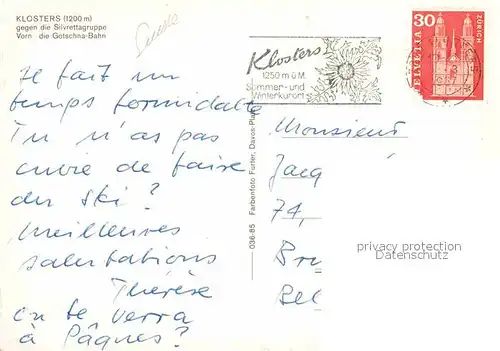 KLOSTERS (1200 m)
gegen die Silvrettagruppe
Vorn die Gotschna-Bahn
Il fait un
temps formidable
Tu n'as pas
envie de faire
du ski?
Meilleures
salutations
Thérèse
on te verra
à Pâques?
036-85 Farbenfoto Furter, Davos-Platz
Klosters
1250 m ü.M.
Sommer- und
Winterkurort
30
HELVETIA
ZÜRICH
Monsieur
Jacq
74,
Bru
Bel
privacy protection
© delcampe.net